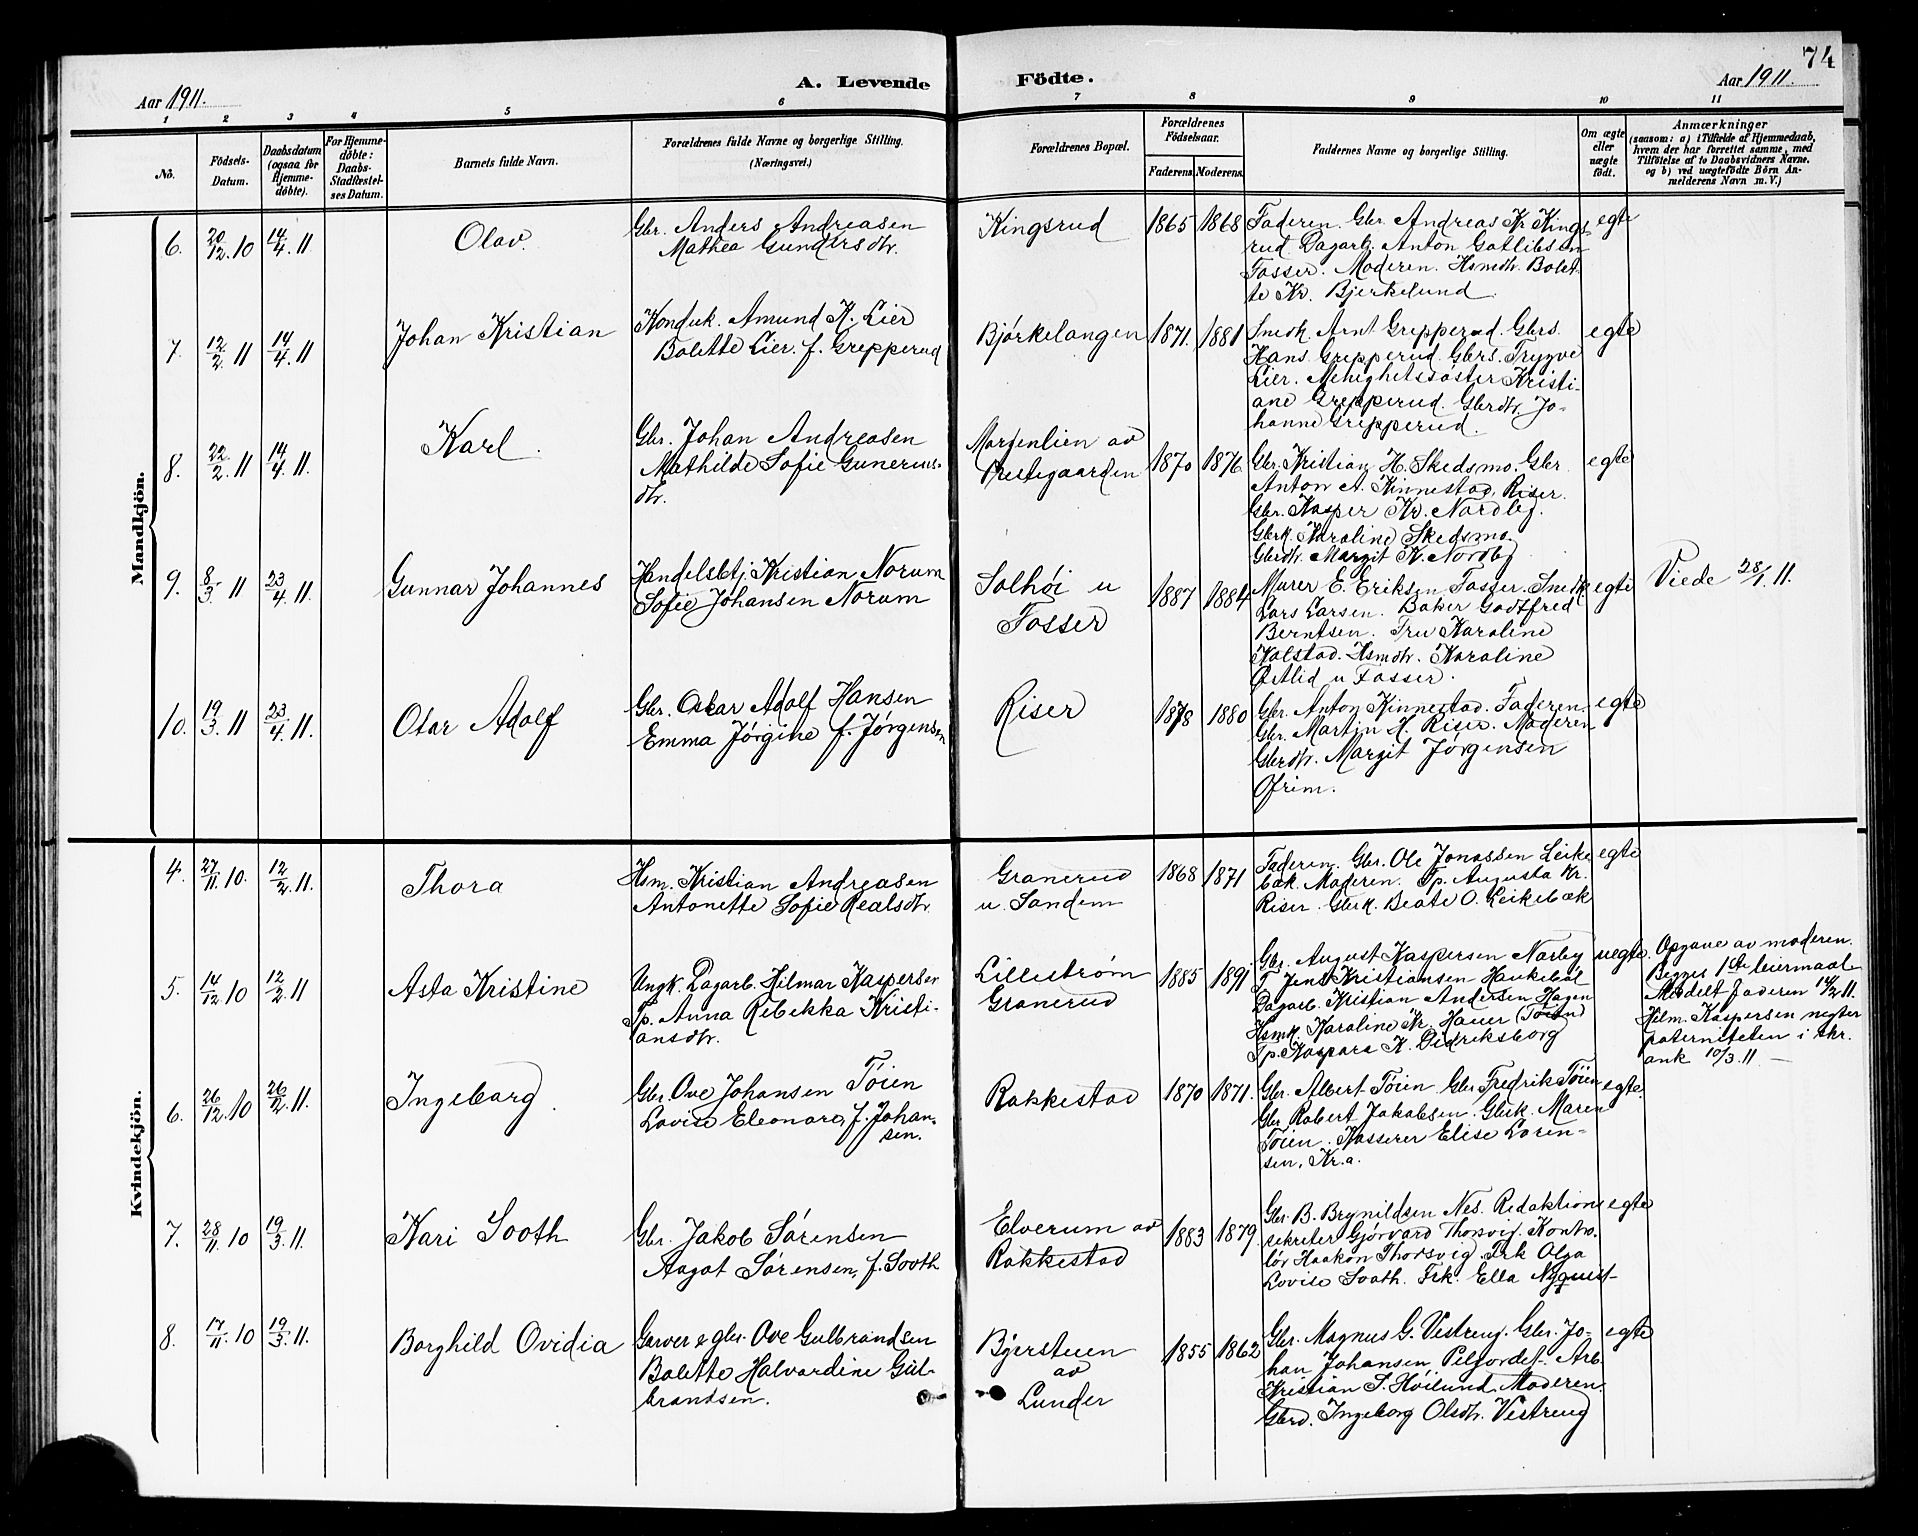 74
A. Levende Födte.
Aar 1911.
Aar 1911.
1 2 3 4 5 6 7 8 9 10 11
No.
Födsels-Datum.
Daabsdatum (ogsaa for Hjemme-döbte).
For Hjemme-döbte: Daabs-Stadfæstel-ses Datum.
Barnets fulde Navn.
Forældrenes fulde Navne og borgerlige Stilling.
(Næringsvei.)
Forældrenes Bopæl.
Forældrenes Födselsaar.
Faderens. Moderens.
Faddernes Navne og borgerlige Stilling.
Om ægte eller uægte födt.
Anmærkninger
(saasom: a) i Tilfælde af Hjemmedaab, hvem der har forrettet samme, med Tilföielse af to Daabsvidners Navne. og b) ved uægtefödte Börn An-melderens Navn m. V.)
Mandkjön.
6. 20/12.10 14/4.11 Olav.
Gbr. Anders Andreasen
Mathea Gundersdtr.
Kingsrud 1865 1868
Faderen. Gbr. Andreas Kr Kings-
rud. Dagarb. Anton Gotlibsen
Fosser. Moderen. Hsmdtr. Bolet-
te Kr. Bjerkelund.
egte
7. 12/2 11 14/4 11 Johan Kristian
Konduk. Amund K. Lier
Bolette Lier. f. Grepperud
Bjørkelangen 1871. 1881
Snedk. Arnt Grepperud. Gbrs.
Hans Grepperud. Gbrs. Trygve
Lier. Menighetssøster Kristi-
ane Grepperud. Gbrdtr. Jo-
hanne Grepperud.
egte
8. 22/2 11 14/4 11. Karl.
Gbr. Johan Andreasen
Mathilde Sofie Gunerius-
dtr.
Morgenlien av
Prestegaarden 1870 1876
Gbr. Kristian H. Skedsmo. Gbr.
Anton A. Kinnestad, Riser.
Gbr. Kasper Kr. Nordby.
Gbrk. Karoline Skedsmo.
Gbrdtr. Margit K. Nordby
egte
9. 8/3 11 23/4 11. Gunnar Johannes
Handelsbtj. Kristian Norum
Sofie Johansen Norum
Solhøi u
Fosser
1887 1884
Murer E. Eriksen Fosser. Snedk.
Lars Larsen. Baker Godtfred
Berntsen. Fru Karoline
Kolstad. Hsmdtr. Karoline
Østlid u Fosser.
egte
Viede 28/1 11.
10. 19/3 11 23/4 11. Otar Adolf
Gbr. Oskar Adolf Hansen
Emma Jørgine f. Jørgensen
Riser 1878 1880
Gbr. Anton Kinnestad. Faderen.
Gbr. Martin H. Riser. Moderen
Gbrdtr. Margit Jørgensen
Ofrim.
egte
Kvindekjön.
4. 27/11.10. 12/2.11. Thora
Hsm. Kristian Andreasen
Antonette Sofie Realsdtr.
Granerud
u. Sandem
1868 1871
Faderen. Gbr. Ole Jonassen Leike
bæk. Moderen. Tp. Augusta Kr.
Riser. Gbrk. Beate O. Leikebæk
egte
5. 14/12 10 12/2 11 Asta Kristine
Ungk. Dagarb. Hilmar Kaspersen
Tp. Anna Rebekka Kristi-
ansdtr.
Lillestrøm
Granerud
1885 1891
Gbr. August Kaspersen Narby
T Jens Kristiansen Haukebøl
Dagarb. Kristian Andersen Hagen
Hsmk. Karoline Kr. Hauer (Tøien)
Tp. Kaspara K. Didriksborg
uegte.
Opgave av moderen.
Begges 1ste leiermaal
Medelt faderen 14/2 11.
Hilm. Kaspersen negter
paterniteten i skr.
ank 10/3.11 —
6. 26/12 10 26/2.11. Ingeborg
Gbr. Ove Johansen Tøien
Lovise Eleonora, f. Johan-
sen.
Rakkestad 1870 1871.
Gbr. Albert Tøien Gbr Fredrik Tøien
Gbr Robert Jakobsen. Gbrk. Maren
Tøien. Kasserer Elise Loren-
sen, Kr.a.
egte.
7. 28/11 10 19/3.11. Kari Sooth
Gbr. Jakob Sørensen
Aagot Sørensen, f. Sooth
Elverum av
Rakkestad
1883 1879.
Gbr. B. Brynildsen Nes. Redaktions
sekretær Gjørvard Thorsvig. Kontro-
lør Haakon Thorsvig. Frk Olga
Lovise Sooth. Frk. Ella Nyquist
egte
8. 17/11. 10 19/3.11. Borghild Ovidia
Garver & gbr. Ove Gulbrandsen
Bolette Halvardine Gul-
brandsen.
Bjersteien
av
Lunder
1855 1862
Gbr. Magnus G. Vestreng. Gbr. Jo-
han Johansen, Pelfordet. Arb.
Kristian S. Høilund. Moderen.
Gbrd. Ingeborg Olsdtr. Vestreng
egte